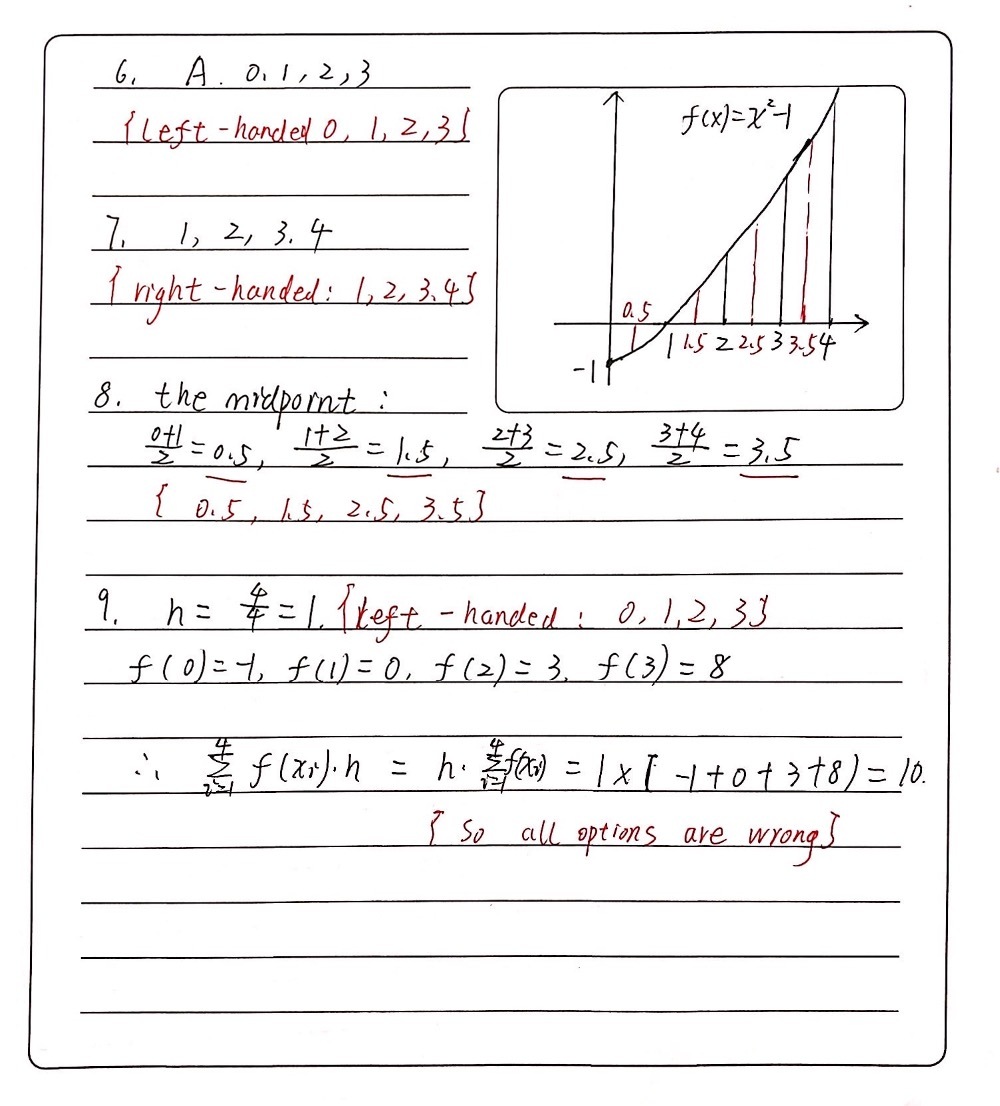 6. A. 0, 1, 2, 3
{left-handed 0, 1, 2, 3}
7. 1, 2, 3. 4
{right-handed: 1, 2, 3.4}
f(x)=x²-1
0.5
1 1.5 2 2.5 3 3.5 4
-1
8. the midpoint:
(0+1)/2 = 0.5, (1+2)/2 = 1.5, (2+3)/2 = 2.5, (3+4)/2 = 3.5
{ 0.5, 1.5, 2.5, 3.5}
9. h = 4/4 = 1. {left-handed: 0, 1, 2, 3}
f(0)=-1, f(1)=0, f(2)=3, f(3)=8
∴ ∑_{i=1}^{4} f(xᵢ)·h = h·∑_{i=1}^{4} f(xᵢ) = 1×[-1+0+3+8) = 10.
{So all options are wrong}